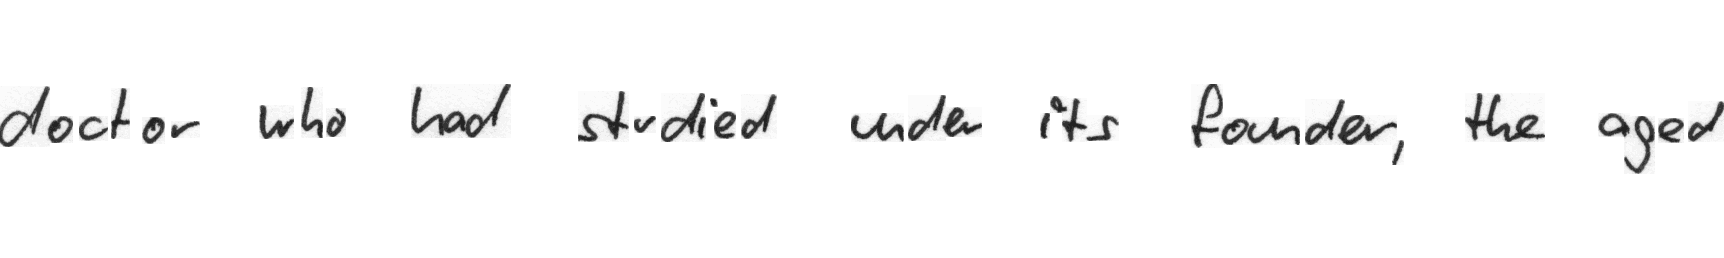 doctor who had studied under its founder, the aged